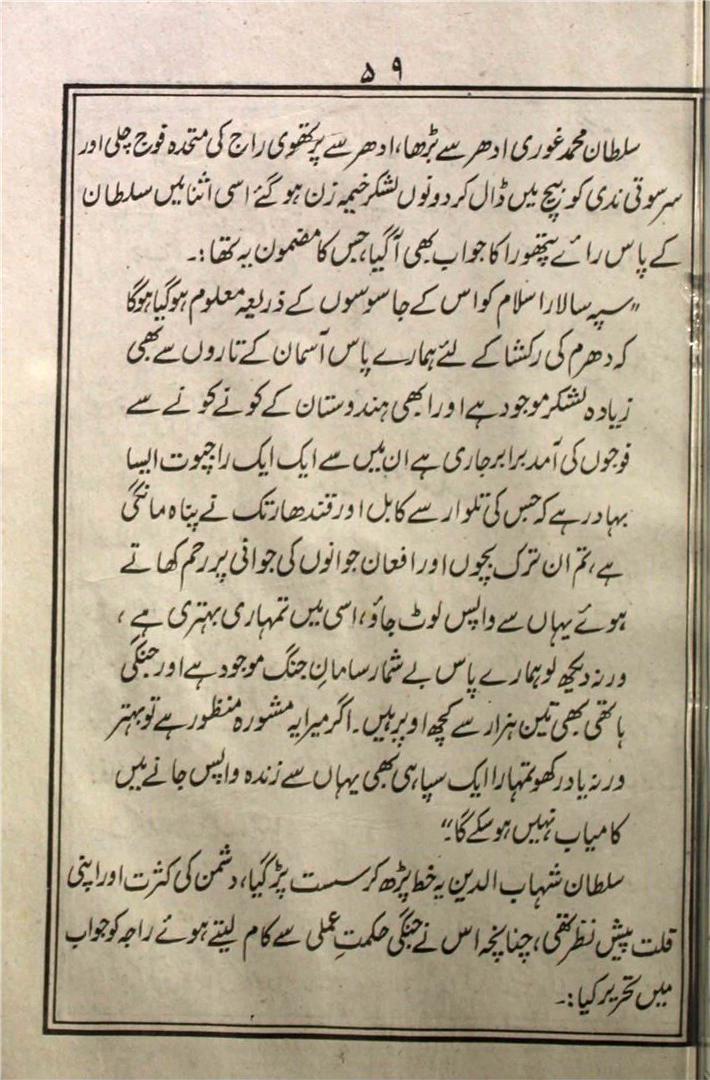 ۵۹
سلطان محمد غوری ادھر سے بڑھا، ادھر سے پرتھوی راج کی متحدہ فوج چلی اور
سرسوتی ندی کو بیچ میں ڈال کر دونوں لشکر خیمہ زن ہو گئے اسی اثنا میں سلطان
کے پاس رائے پتھورا کا جواب بھی آگیا، جس کا مضمون یہ تھا:۔
”سپہ سالار اسلام کو اس کے جاسوسوں کے ذریعہ معلوم ہو گیا ہوگا
کہ دھرم کی رکشا کے لئے ہمارے پاس آسمان کے تاروں سے بھی
زیادہ لشکر موجود ہے اور ابھی ہندوستان کے کونے کونے سے
فوجوں کی آمد برابر جاری ہے ان میں سے ایک ایک راجپوت ایسا
بہادر ہے کہ جس کی تلوار سے کابل اور قندھار تک نے پناہ مانگی
ہے، تم ان ترک بچوں اور افعان جوانوں کی جوانی پر رحم کھاتے
ہوئے یہاں سے واپس لوٹ جاؤ، اسی میں تمہاری بہتری ہے،
ورنہ دیکھ لو ہمارے پاس بے شمار سامانِ جنگ موجود ہے اور جنگی
ہاتھی بھی تین ہزار سے کچھ اوپر ہیں۔ اگر میرا یہ مشورہ منظور ہے تو بہتر
ورنہ یاد رکھو تمہارا ایک سپاہی بھی یہاں سے زندہ واپس جانے میں
کامیاب نہیں ہو سکے گا۔“
سلطان شہاب الدین یہ خط پڑھ کر سست پڑ گیا، دشمن کی کثرت اور اپنی
قلت پیش نظر تھی، چنانچہ اس نے جنگی حکمتِ عملی سے کام لیتے ہوئے راجہ کو جواب
میں تحریر کیا:۔